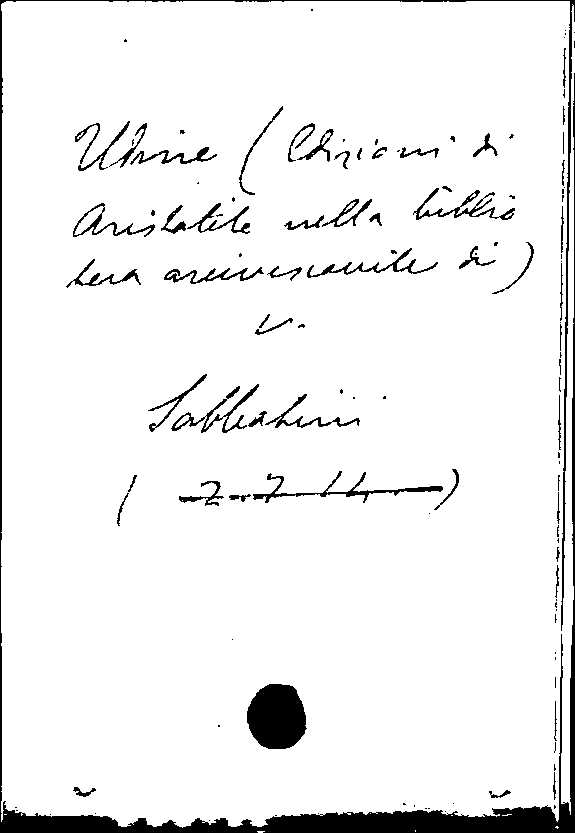 Udine (Edizioni di
Aristotele nella biblio
teca arcivescovile di)
v.
Sabbatini
( )